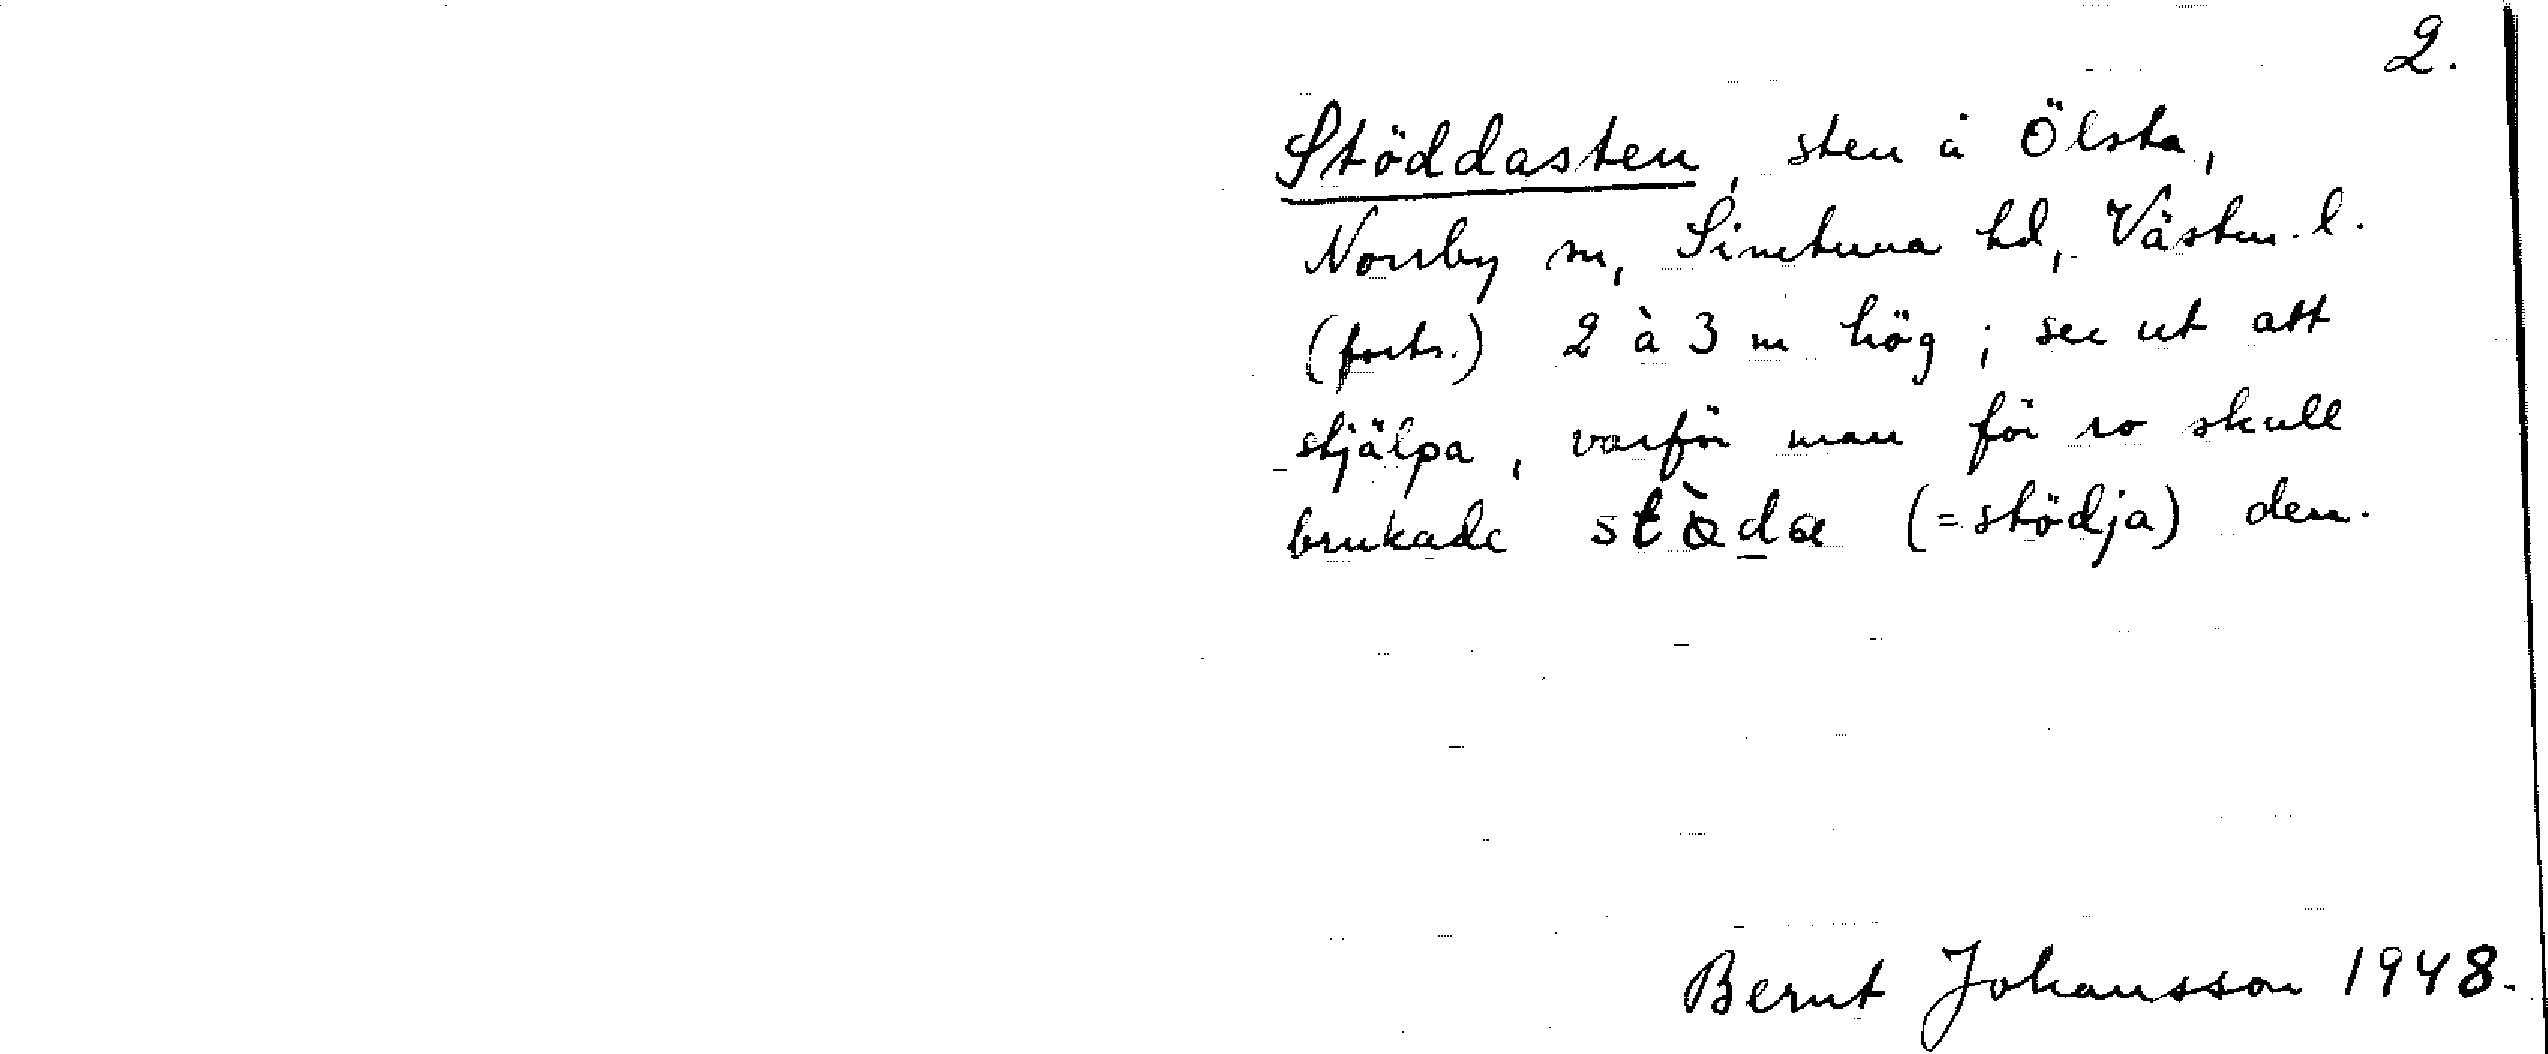 2.
Stöddasten, sten å Ölsta,
Norrby sn, Simtuna hd, Västm. l.
(forts.) 2 à 3 m hög; ser ut att
stjälpa, varför man för ro skull
brukade (=stödja) den.
Bernt Johansson 1948.